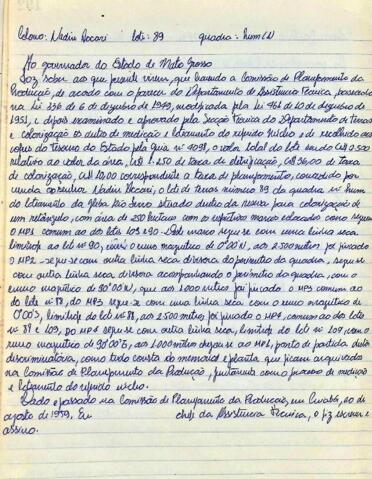 Colono: Nadir Vocari lote: 89 quadra: hum (1)
Ao governador do Estado de Mato Grosso
Faz saber aos que presente virem, que tramitando a Comissão de Planejamento da
Produção, de acordo com o parecer do Departamento de Assistência Técnica, passado
na Lei 336 de 6 de dezembro de 1949, modificada pela Lei 461 de 10 de dezembro de
1951, e depois examinado e aprovado pela Secção Técnica do Departamento de Terras
e colonização os autos de medição e loteamento do referido núcleo e de recolhido aos
cofres do Tesouro do Estado pela guia nº 4098, o valor total do lote
relativo ao valor da área, de taxa de de taxa
de colonização, correspondente a taxa de planejamento, concedido por
venda ao senhor Nadir Vocari, o lote de terras número 89 da quadra nº hum
do loteamento da gleba Rio Ferro situado dentro da reserva para colonização de
um retângulo, com área de 250 hectares com os respectivos marcos colocados como segue:
o MP1 comum ao dos lotes 109 e 90. Deste marco segue com uma linha seca,
limítrofe ao lote nº 90, com o rumo magnético de 0º00'N, aos 2.500 metros foi fincado
o MP2. - segue com outra linha seca divisora do perímetro da quadra, segue
com outra linha seca, divisora acompanhando o perímetro da quadra, com o
rumo magnético de 90º00' , que aos 1.000 metros foi fincado o MP3 comum ao
do lote nº 88, do MP3 segue com uma linha seca com o rumo magnético de
0º00'S, limítrofe do lote nº 88, aos 2500 metros foi fincado o MP4, comum ao do lote
nº 88 e 109, do MP4 segue com outra linha seca, limítrofe do lote nº 109, com o
rumo magnético de 90º00'E, aos 1.000 metros chega ao MP1, ponto de partida desta
discriminativa, como tudo consta do memorial e planta que ficam arquivados
na Comissão de Planejamento da Produção, juntamente com o processo de medição
e loteamento do referido núcleo.
Dado e passado na Comissão de Planejamento da Produção, em Cuiabá, de
agosto de 1959, Eu chefe da Assistência Técnica, o fiz escrever e
assino.